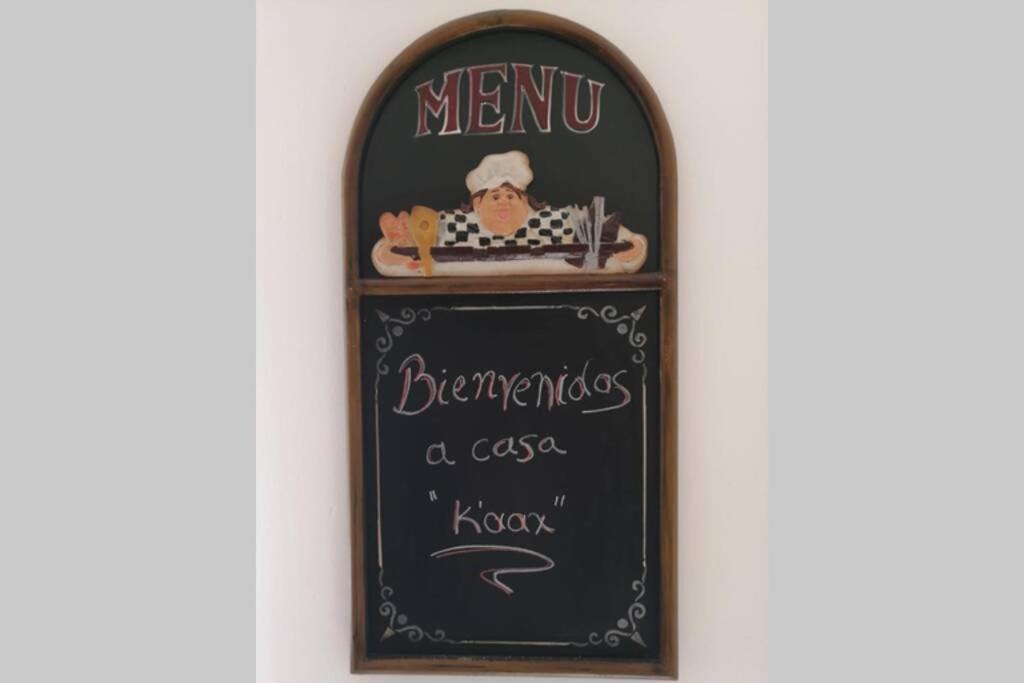 MENU
Bienvenidos
a casa
"K'aax"